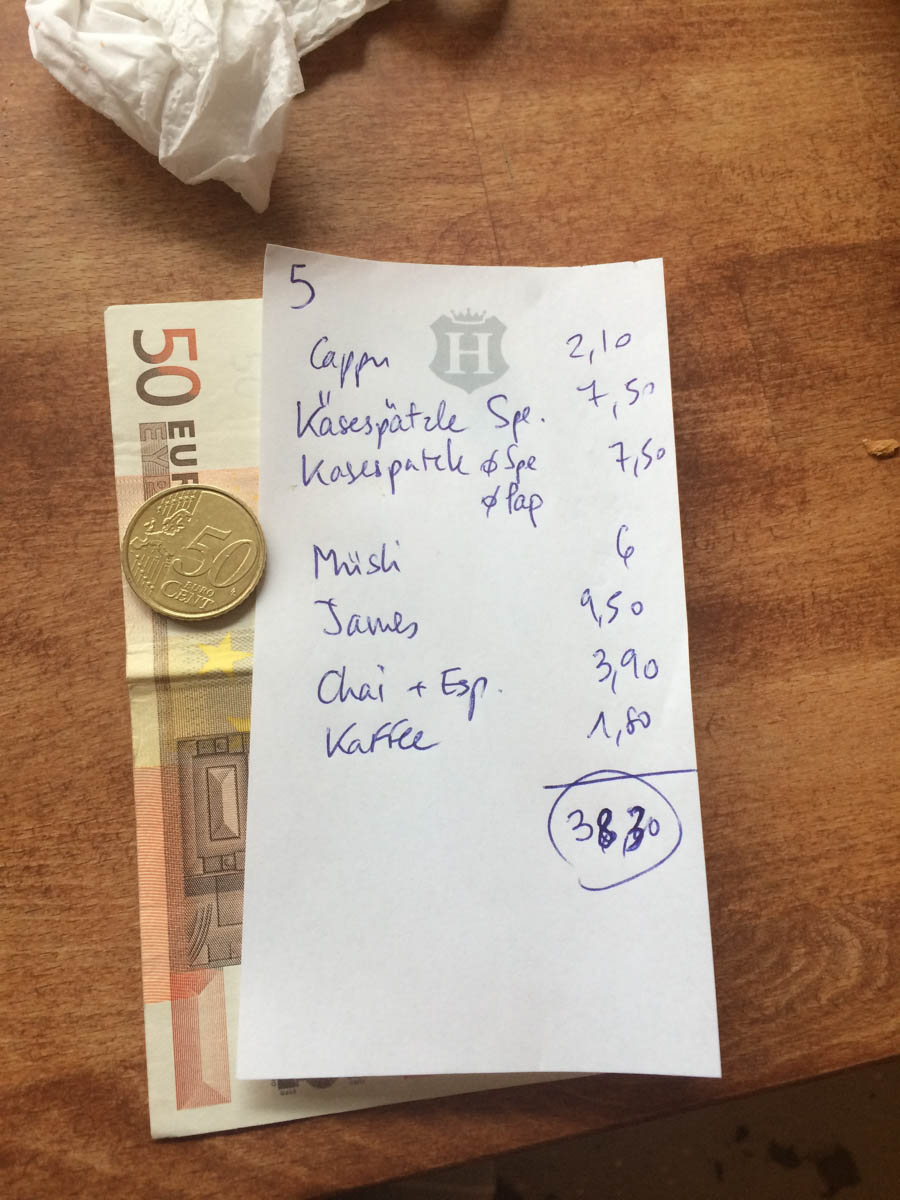 5
H
Cappu 2,10
Käsespätzle Spe. 7,50
Kasespatzle ∅ Spe 7,50
∅ Pap
Müsli 6
James 9,50
Chai + Esp. 3,90
Kaffee 1,80
38,30
50 EURO
50
EURO
CENT